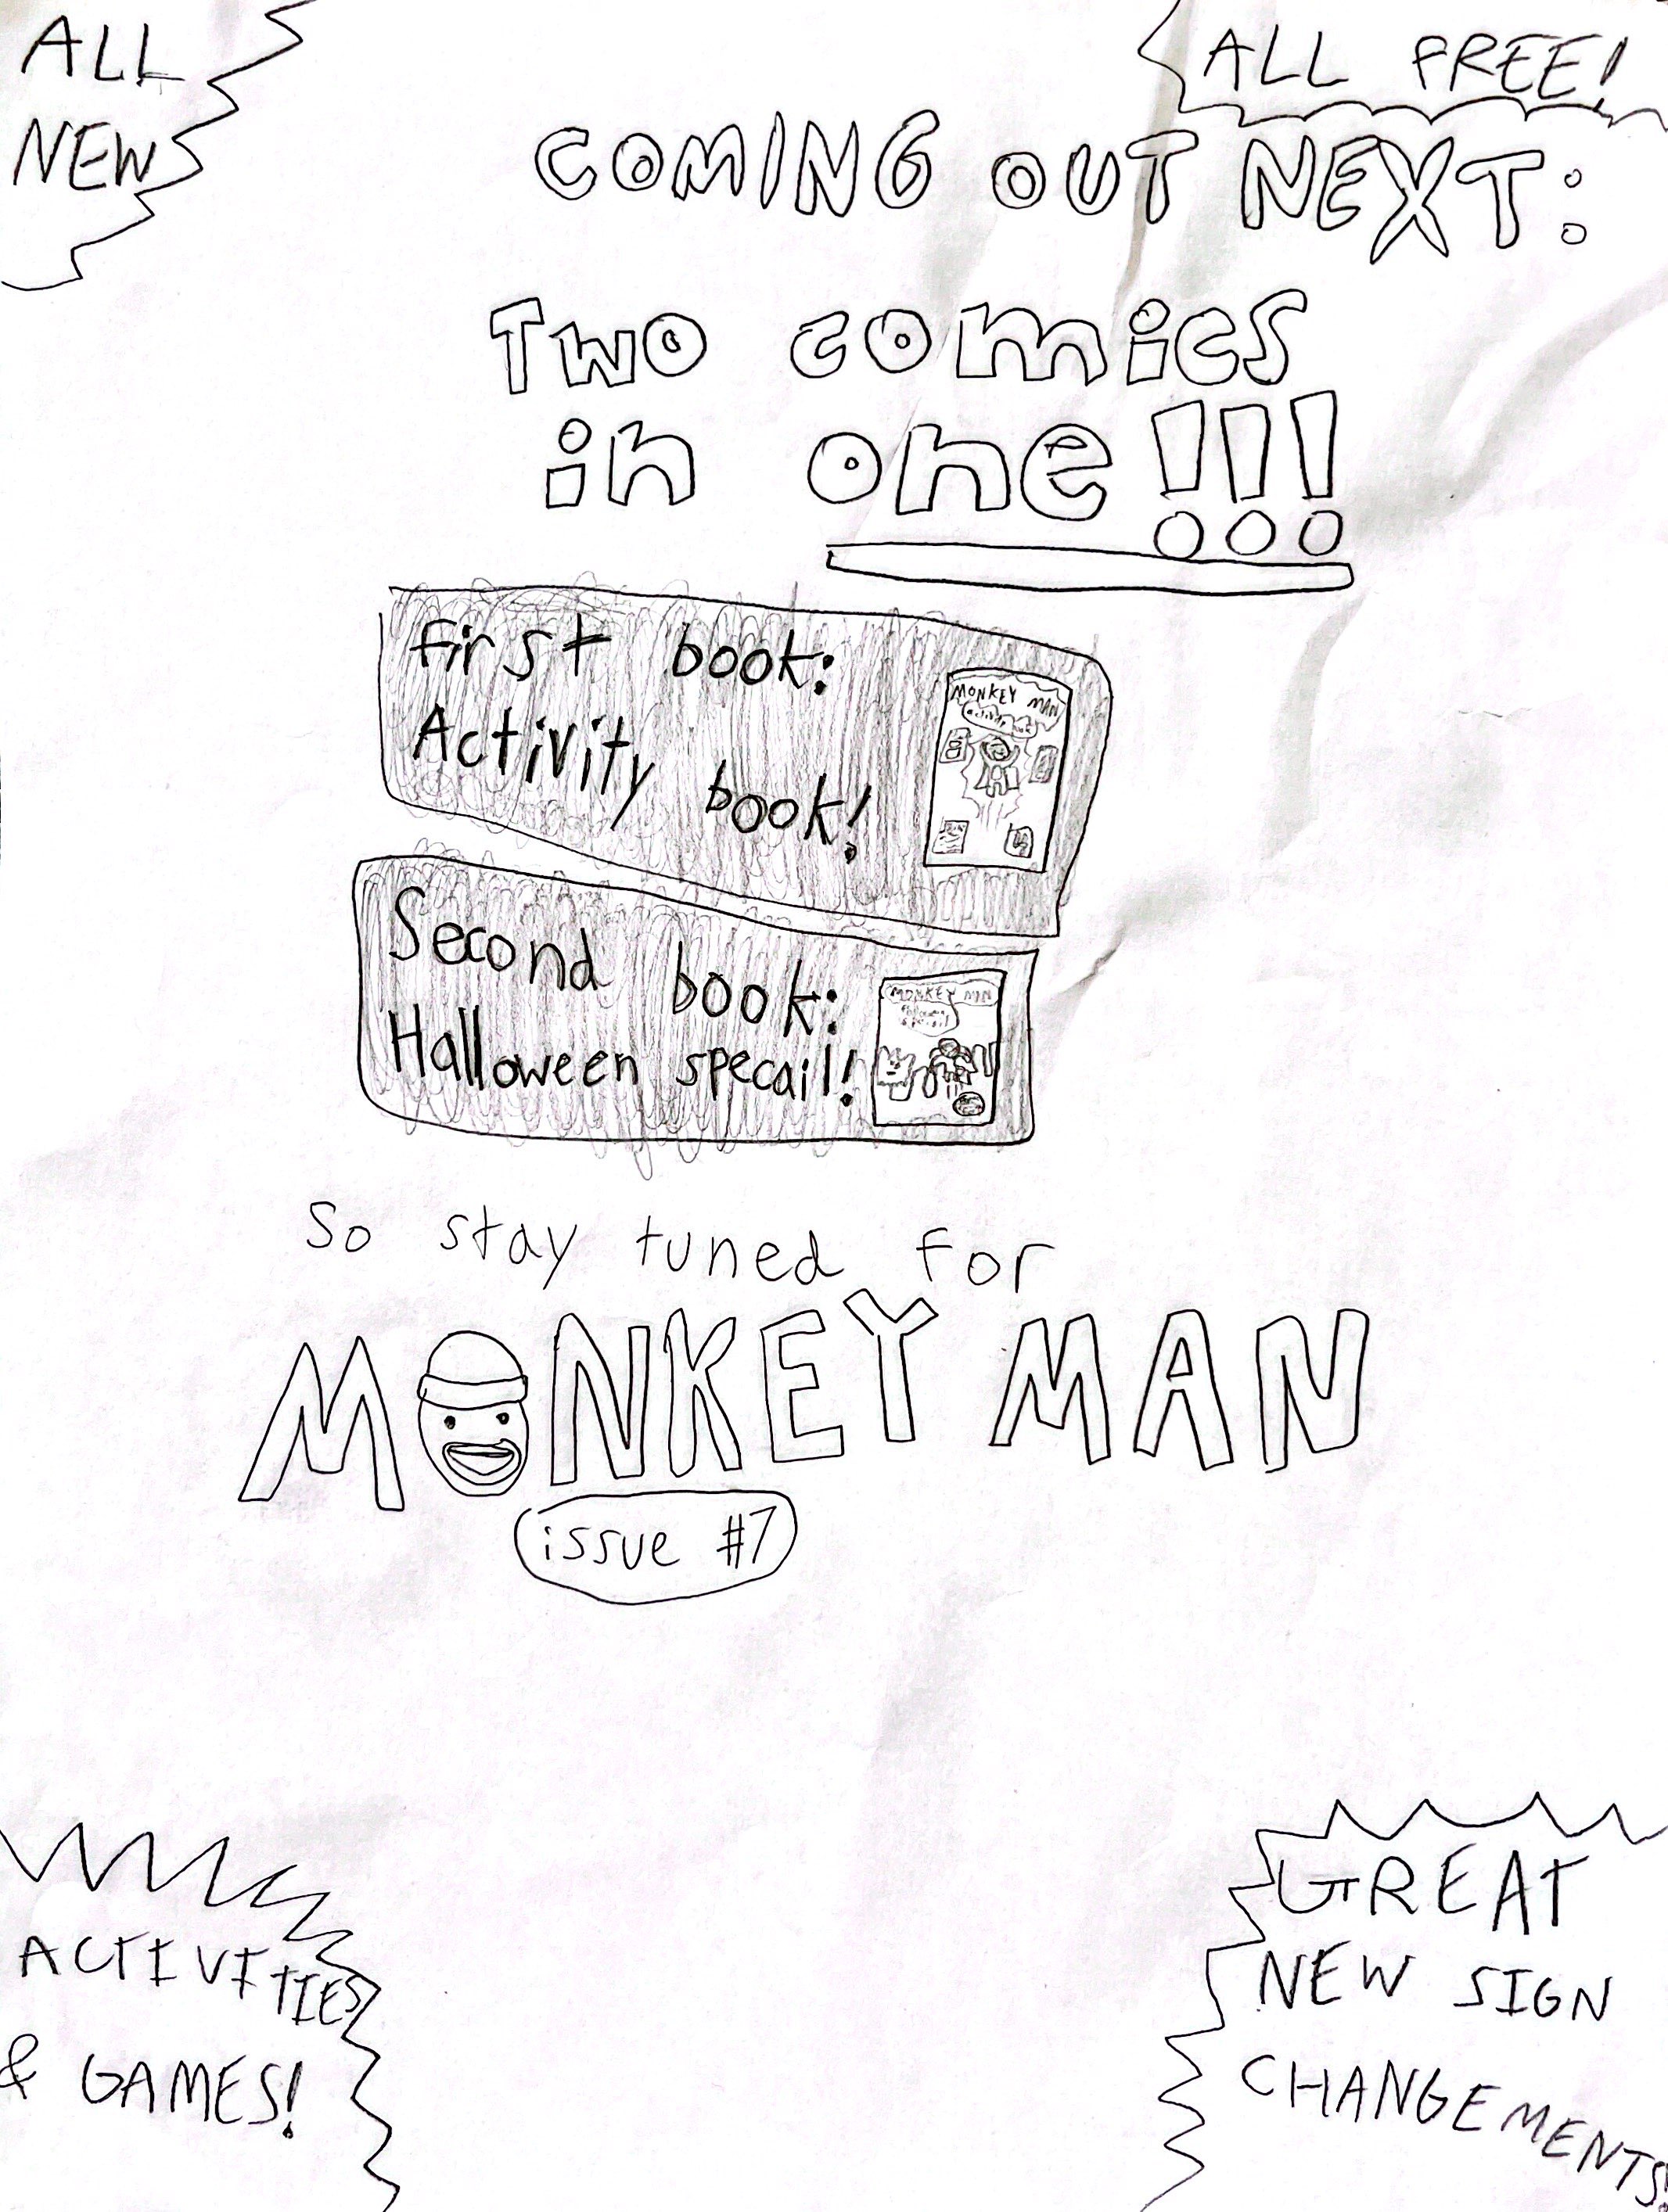 ALL
NEW
ALL FREE!
COMING OUT NEXT:
Two comics
in one!!!
first book:
Activity
book!
MONKEY MAN
activity book
Second book:
Halloween specail!
MONKEY MAN
So stay tuned for
MONKEY MAN
issue #7
ACTIVITIES
& GAMES!
GREAT
NEW SIGN
CHANGEMENTS!